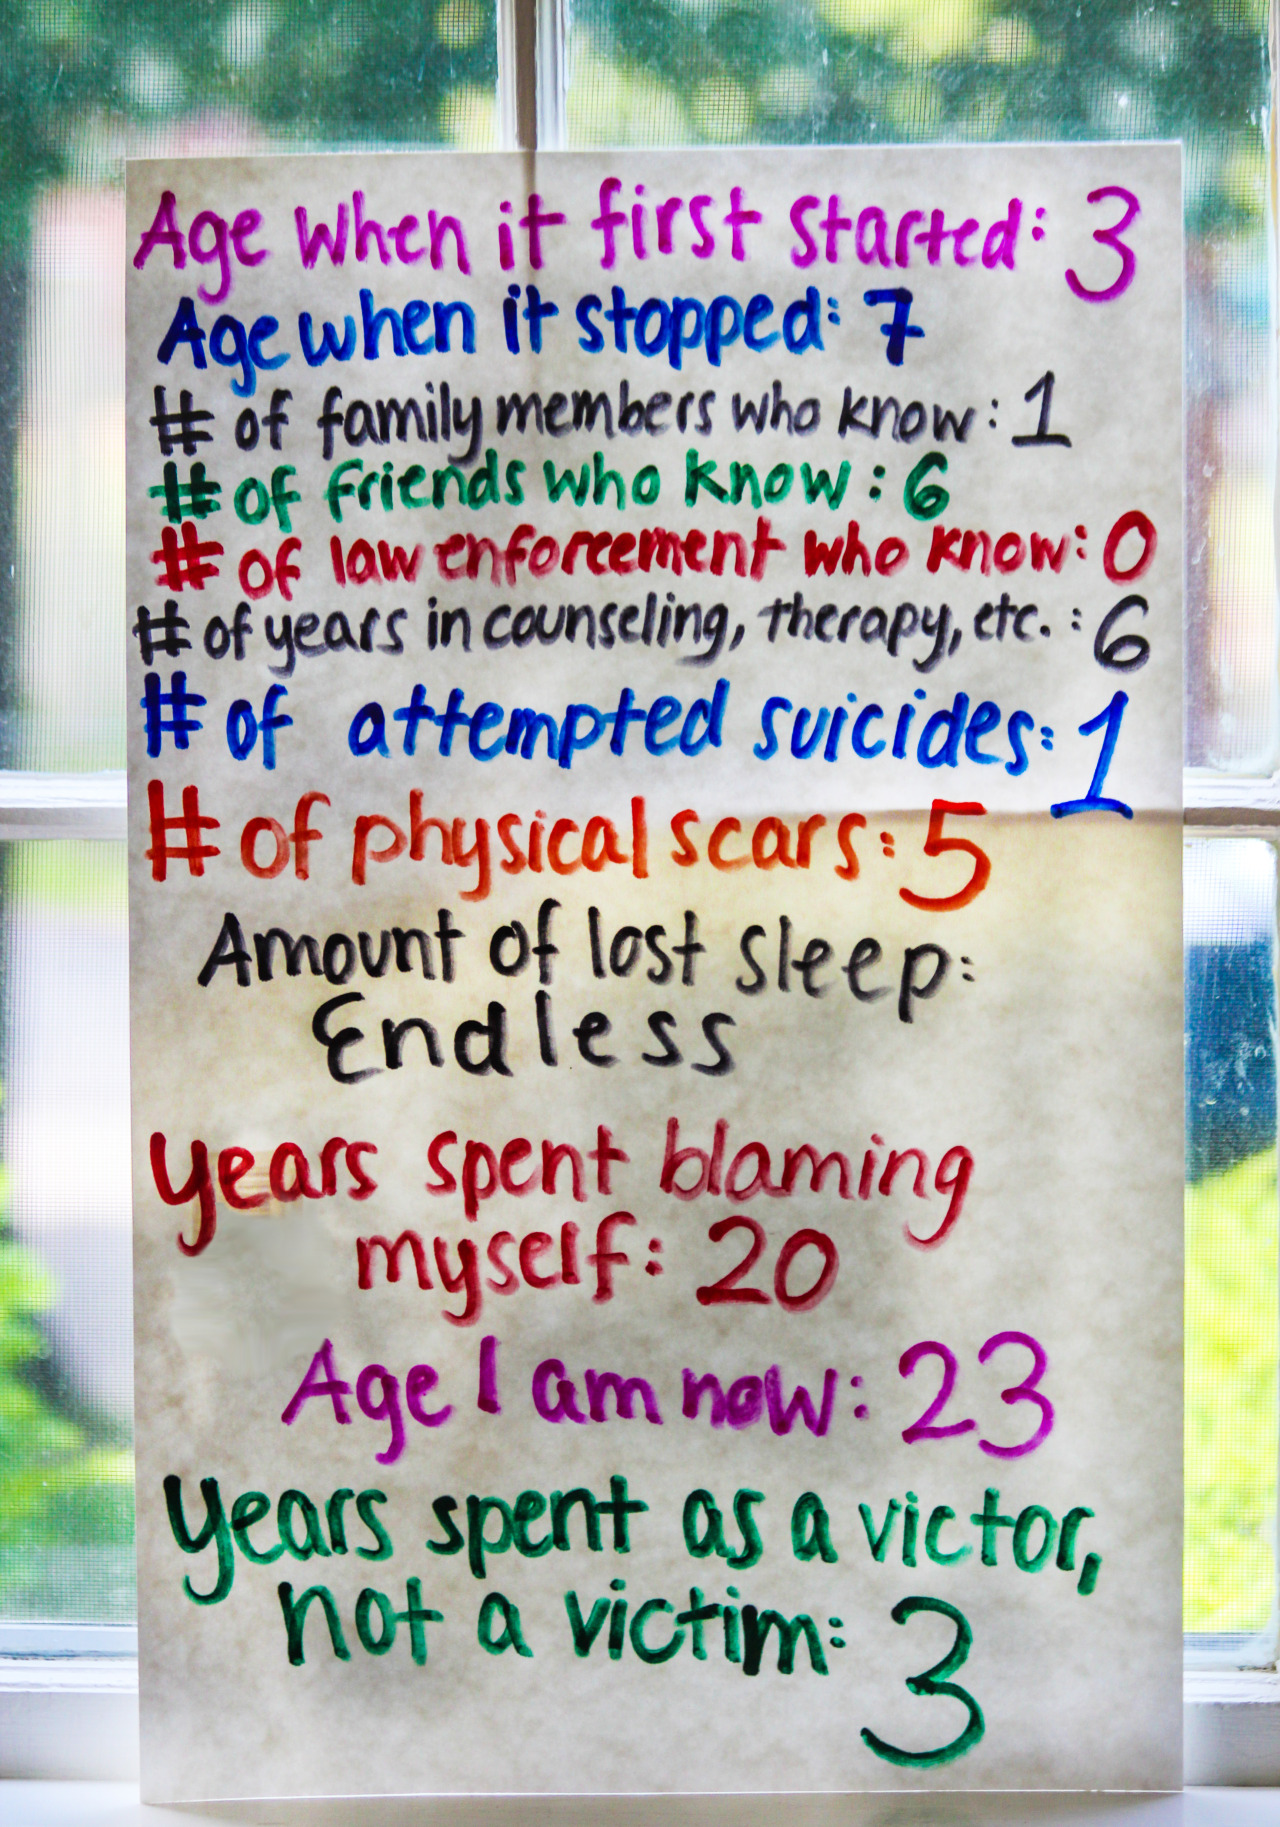 Age when it first started: 3
Age when it stopped: 7
# of family members who know: 1
# of friends who know: 6
# of law enforcement who know: 0
# of years in counseling, therapy, etc. : 6
# of attempted suicides: 1
# of physical scars: 5
Amount of lost sleep:
Endless
Years spent blaming
myself: 20
Age I am now: 23
Years spent as a victor,
not a victim: 3